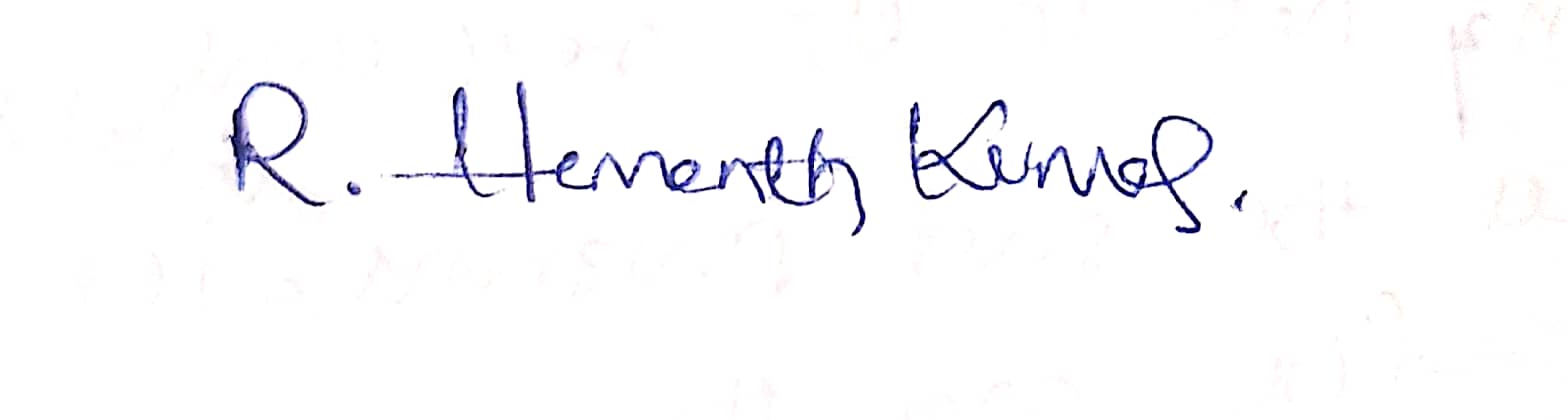 R. Hemanth Kumar.